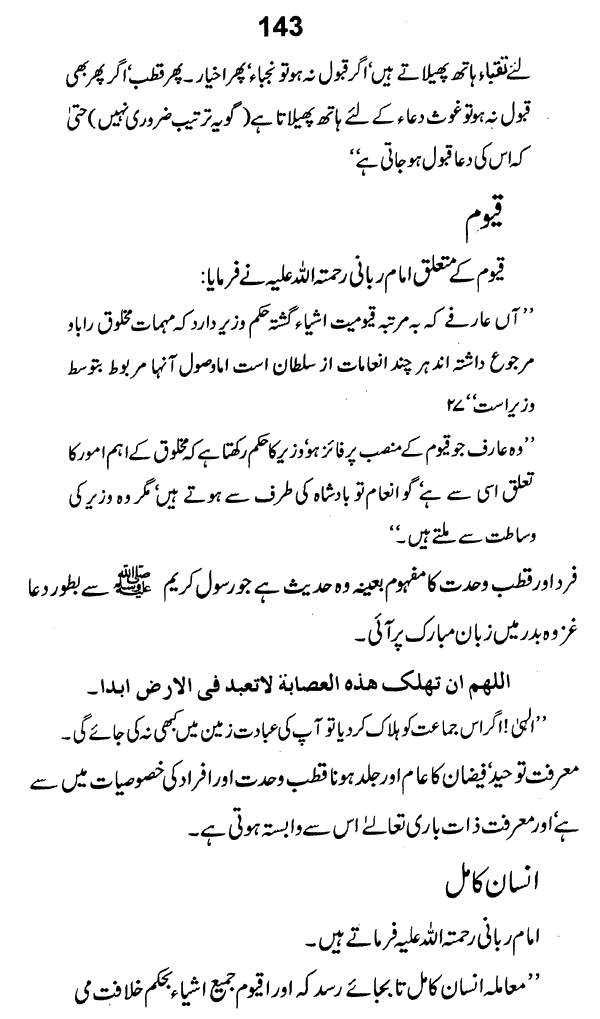 143
لئے نقباء ہاتھ پھیلاتے ہیں' اگر قبول نہ ہو تو نجباء' پھر اخیار۔ پھر قطب' اگر پھر بھی
قبول نہ ہو تو غوث دعاء کے لئے ہاتھ پھیلاتا ہے (گو یہ ترتیب ضروری نہیں) حتیٰ
کہ اس کی دعا قبول ہو جاتی ہے‘‘
قیوم
قیوم کے متعلق امام ربانی رحمتہ اللہ علیہ نے فرمایا:
’’آں عارفے کہ بہ مرتبہ قیومیت اشیاء گشتہ حکم وزیر دارد کہ مہمات مخلوق را باو
مرجوع داشتہ اند ہر چند انعامات از سلطان است اما وصول آنہا مربوط بتوسط
وزیر است‘‘ ۲۷
’’وہ عارف جو قیوم کے منصب پر فائز ہو' وزیر کا حکم رکھتا ہے کہ مخلوق کے اہم امور کا
تعلق اسی سے ہے' گو انعام تو بادشاہ کی طرف سے ہوتے ہیں' مگر وہ وزیر کی
وساطت سے ملتے ہیں۔‘‘
فرد اور قطب وحدت کا مفہوم بعینہ وہ حدیث ہے جو رسول کریم ﷺ سے بطور دعا
غزوہ بدر میں زبان مبارک پر آئی۔
اللهم ان تهلک هذه العصابة لاتعبد فی الارض ابدا۔
’’الٰہی! اگر اس جماعت کو ہلاک کر دیا تو آپ کی عبادت زمین میں کبھی نہ کی جائے گی۔
معرفت توحید' فیضان کا عام اور جلد ہونا قطب وحدت اور افراد کی خصوصیات میں سے
ہے' اور معرفت ذات باری تعالےٰ اس سے وابستہ ہوتی ہے۔
انسان کامل
امام ربانی رحمتہ اللہ علیہ فرماتے ہیں۔
’’معاملہ انسان کامل تا بجائے رسد کہ او را قیوم جمیع اشیاء بحکم خلافت می